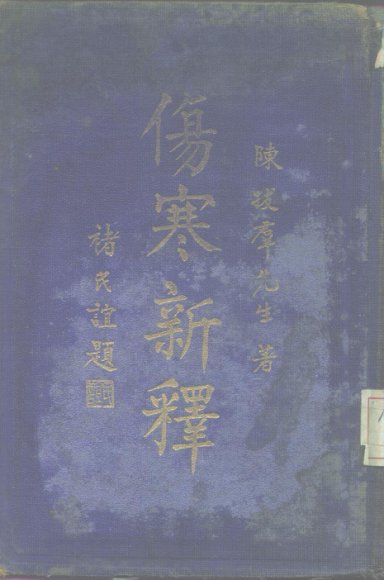 陳拔群先生著
傷寒新釋
褚民誼題